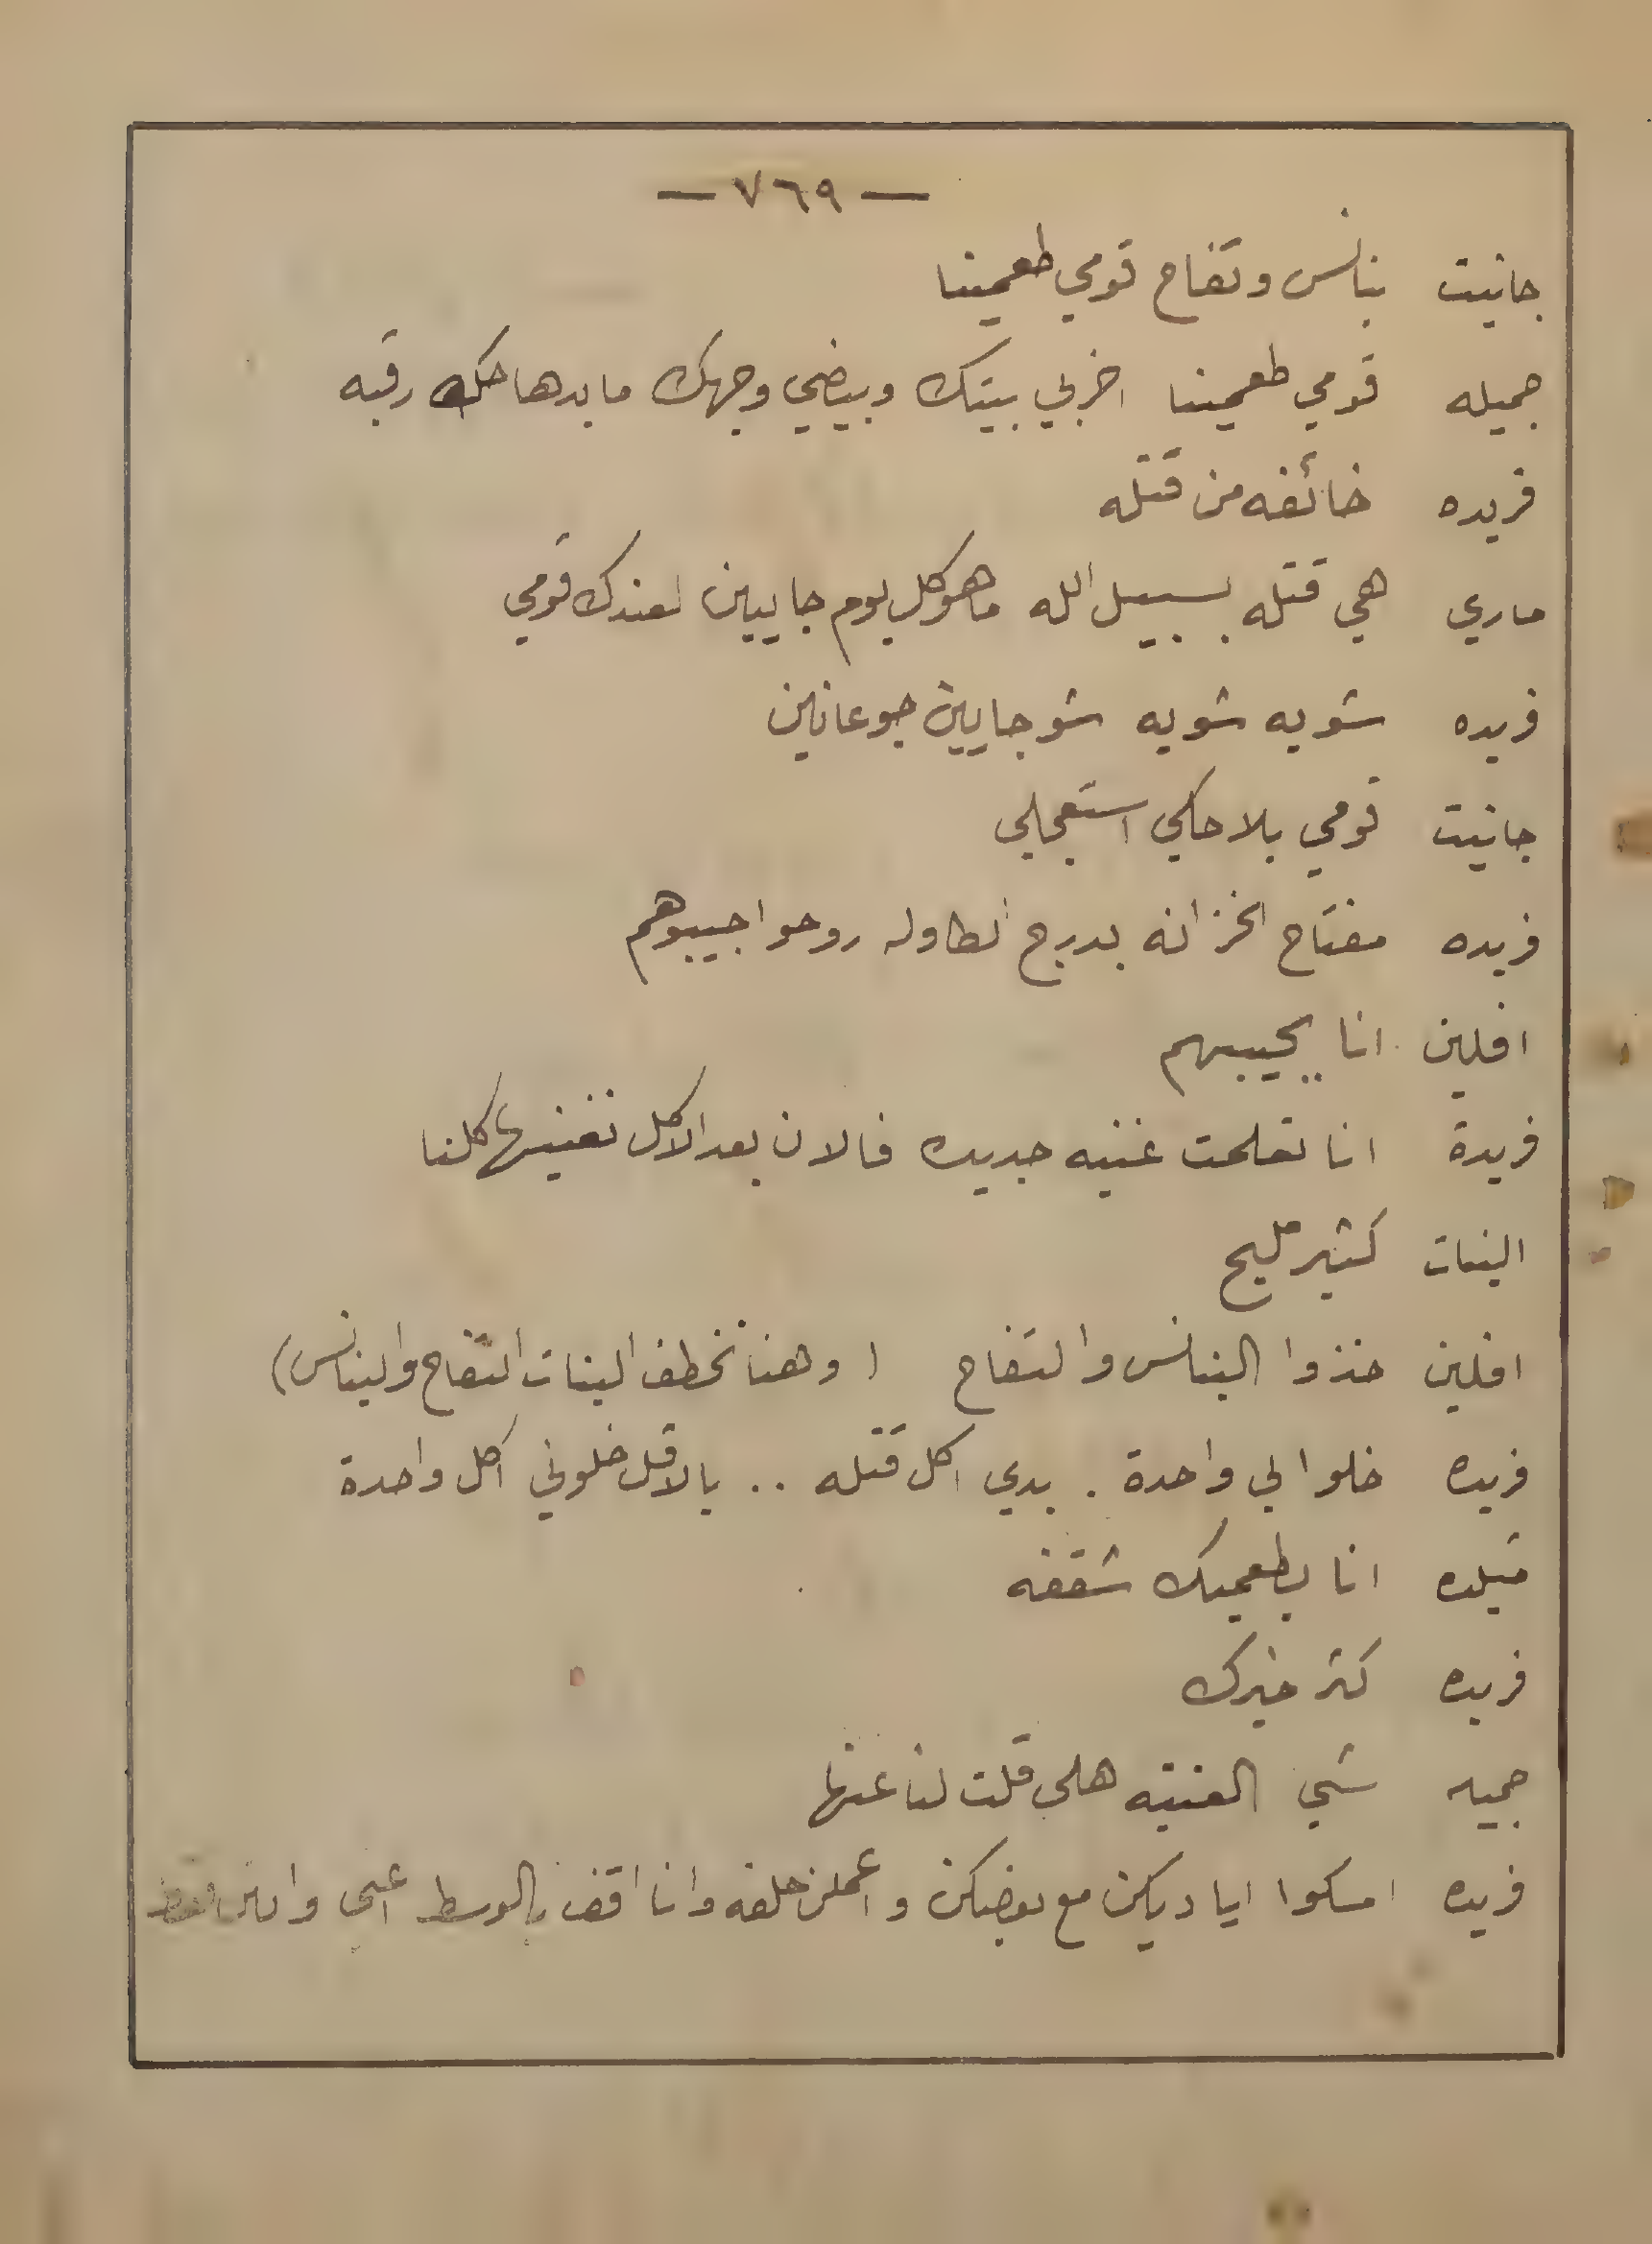 — ٧٦٩ —
جانيت بنانس وتفاح قومي طعمينا
جميله قومي طعمينا اخربي بيتك وبيضي وجهك ما بدها حك رقبه
فريده خائفه من قتله
ماري هي قتله بسبيل الله ما هو كل يوم جايين لعندك قومي
فريده شويه شويه شو جايين جوعانين
جانيت قومي بلا حكي استعجلي
فريده مفتاح الخزانه بدرج الطاوله روحوا جيبوهم
افلين انا بجيبهم
فريدة انا تعلمت غنيه جديده فالان بعد الاكل نغنيها كلنا
البنات كثير مليح
افلين خذوا البنانس والتفاح ( وهنا تخطف البنات التفاح والبنانس)
فريده خلوا لي واحدة . بدي اكل قتله .. بالاقل خلوني اكل واحدة
انا بطعميك شقفه
فريده كثر خيرك
جميله شي الغنيه هلي قلت لنا عنها
فريده امسكوا اياديكن مع بعضكن واعملن حلقه وانا اقف بالوسط